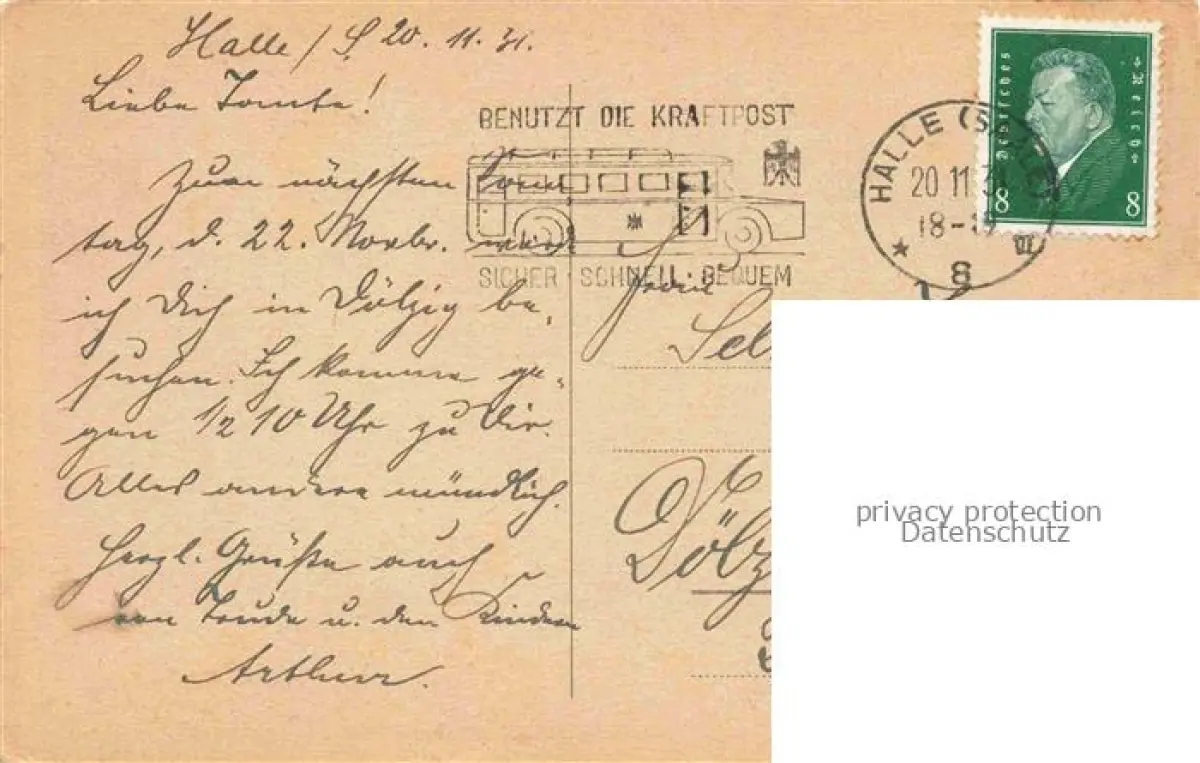 Halle/S. 20. 11. 31.
Liebe Tante!
Zum nächsten Sonn
tag, d. 22. Novbr. will
ich Dich in Dölzig be-
suchen. Ich komme ge-
gen 1/2 10 Uhr zu Dir.
Alles andere mündlich.
Herzl. Grüße auch
von Trude u. den Kindern
Arthur.
BENUTZT DIE KRAFTPOST
SICHER · SCHNELL · BEQUEM
HALLE (SAALE)
20 11 31
18-19
8
Deutsches Reich
8 8
Frau
Sel
Dölz
privacy protection
Datenschutz